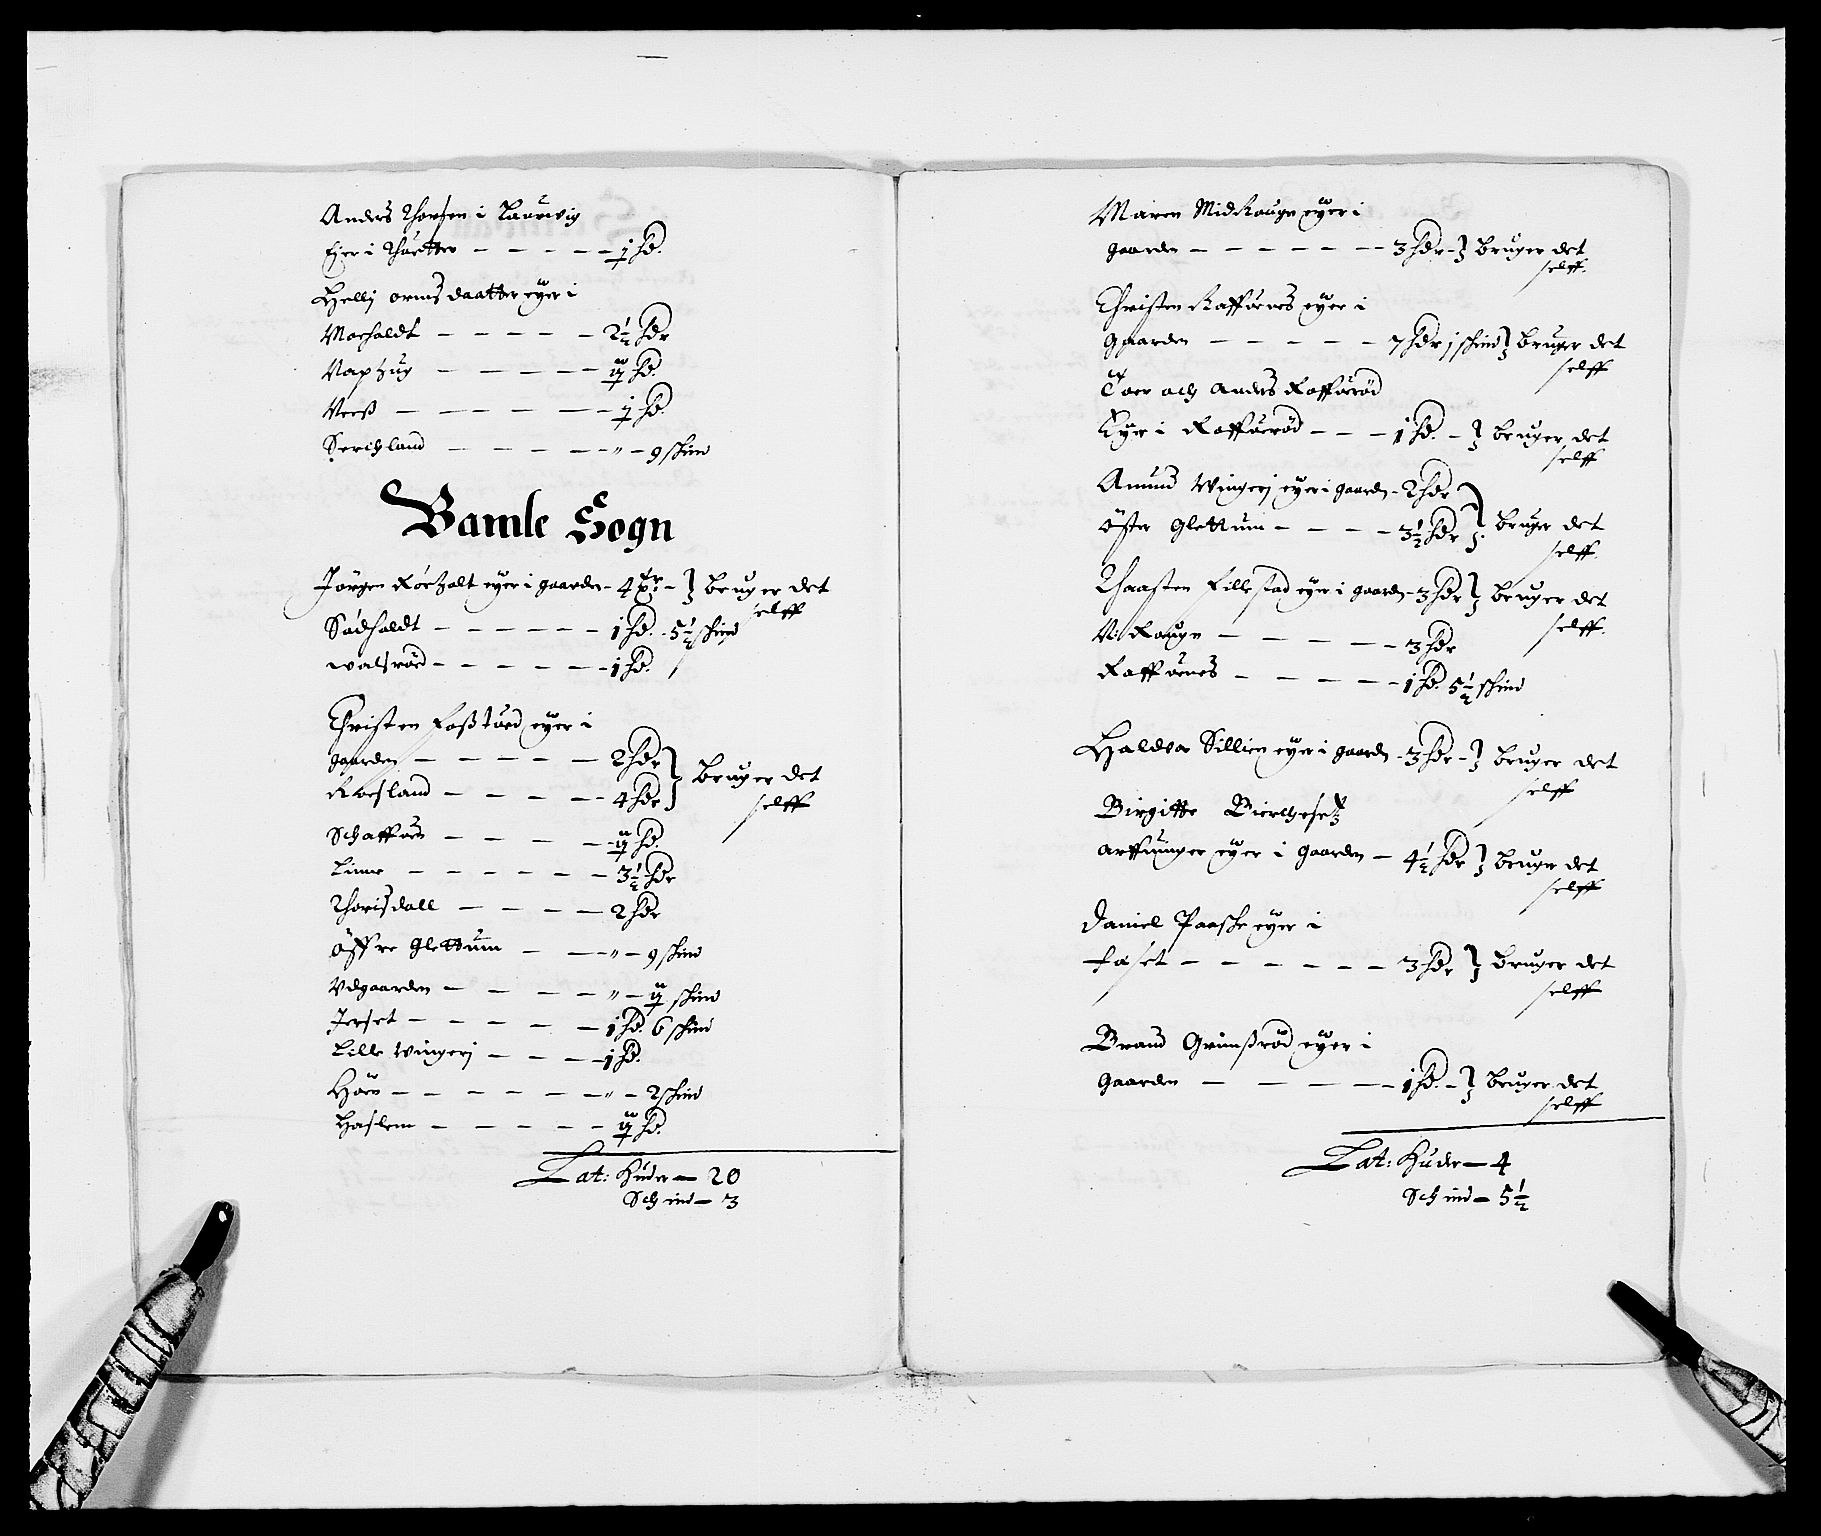 Anders Thorsen i Laurwig
Ejer i Thuetter — 1 hd.
Hellj ormsdaatter eyer i
Moeholdt — 2½ hdr
Napzug — ½ hd.
Neeß — 1 hd.
Serichland — " — 9 schind
Bamle Sogn
Jörgen Rörholt eyer i gaarden — 4 } bruger det
selff
Södholdt — 1 hd. 5½ schind
walsröd — 1 hd.
Christen Foßtued eyer i
gaarden — 2 hdr } bruger det
Roesland — 4 hdr selff
Schaffuen — ½ hd.
Linne — 3½ hdr
Thorisdall — 2 hdr
öffre Glettum — " — 9 schind
Vdgaarden — " — schind
Jerset — 1 hd. 6 schind
Lille Wingerj — 1 hd.
Höen — " — 2 schind
Haslem — ½ hd.
Lat: Huder — 20
Schind — 3
Maren Midhougn eyer i
gaarden — 3 hdr } bruger det
selff.
Christen Raffuenes eyer i
gaarden — 7 hdr 1 schind } bruger det
selff
Toer och Anders Raffueröd
Eyer i Raffueröd — 1 hd. } bruger det
selff
Amund Wingerj eyer i gaarden — 2 hdr
öster Glettum — 3½ hdr } bruger det
selff.
Thaasten Fillestad eyer i gaarden — 3 hdr } bruger det
selff.
N: Rougn — 3 hdr
Raffuenes — 1 hd. 5½ schind
Haldvor Sillien eyer i gaarden — 3 hdr } bruger det
selff
Birgitte Bierchesetz
arffuinger eyer i gaarden — 4½ hdr } bruger det
selff
Daniel Paasche eyer i
Foset — 3 hdr } bruger det
selff
Brand Grimßröd eyer i
gaarden — 1 hd. } bruger det
selff
Lat: Huder — 4
Schind — 5½